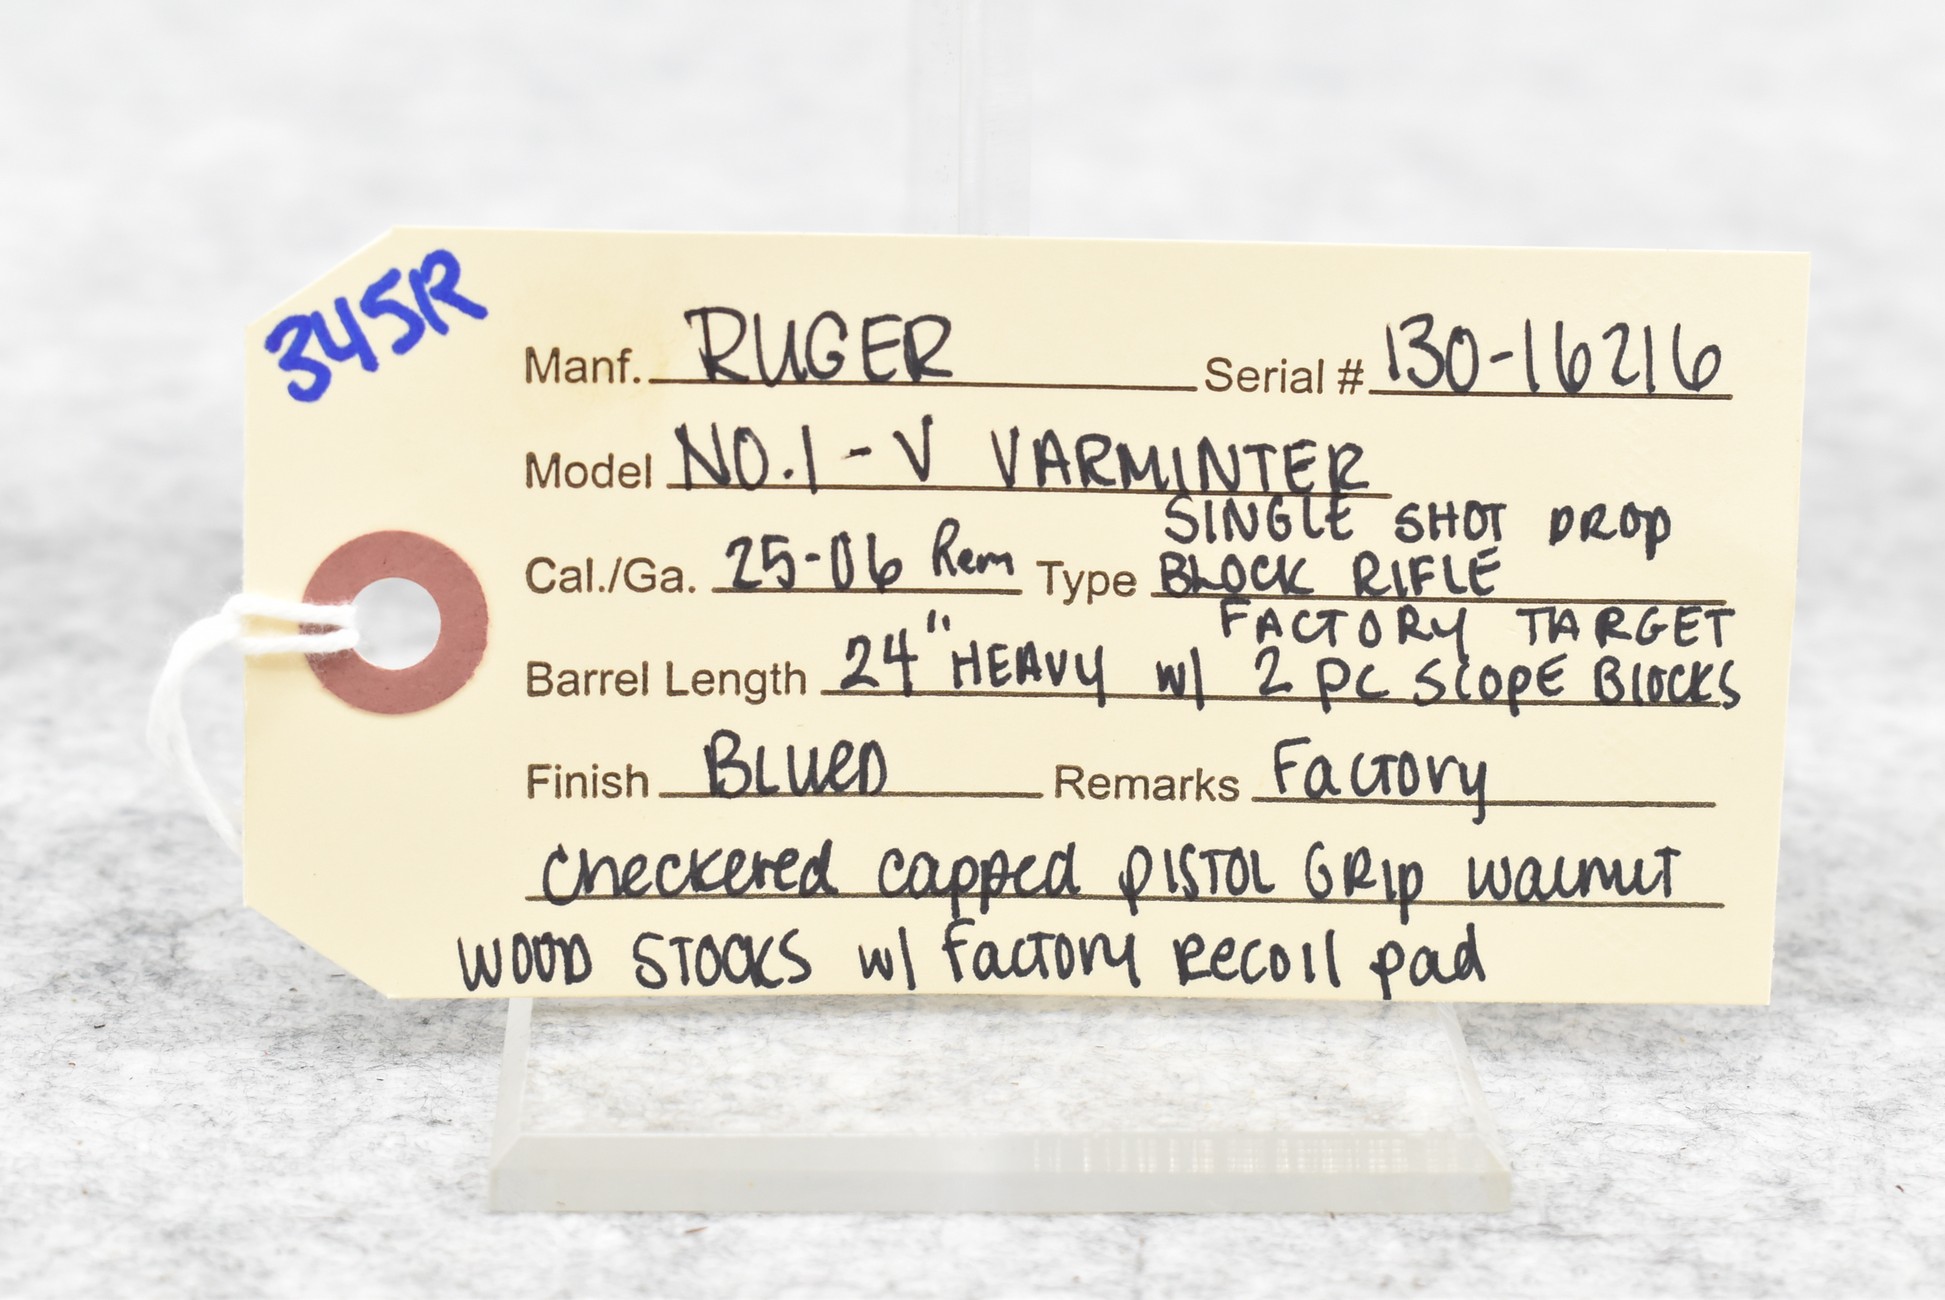 345R
Manf. RUGER Serial # 130-16216
Model NO.1-V VARMINTER
SINGLE SHOT DROP
Cal./Ga. 25-06 Rem Type BLOCK RIFLE
FACTORY TARGET
Barrel Length 24" HEAVY w/ 2 PC SCOPE BLOCKS
Finish BLUED Remarks Factory
checkered capped PISTOL GRIP walnut
WOOD STOCKS w/ factory Recoil pad